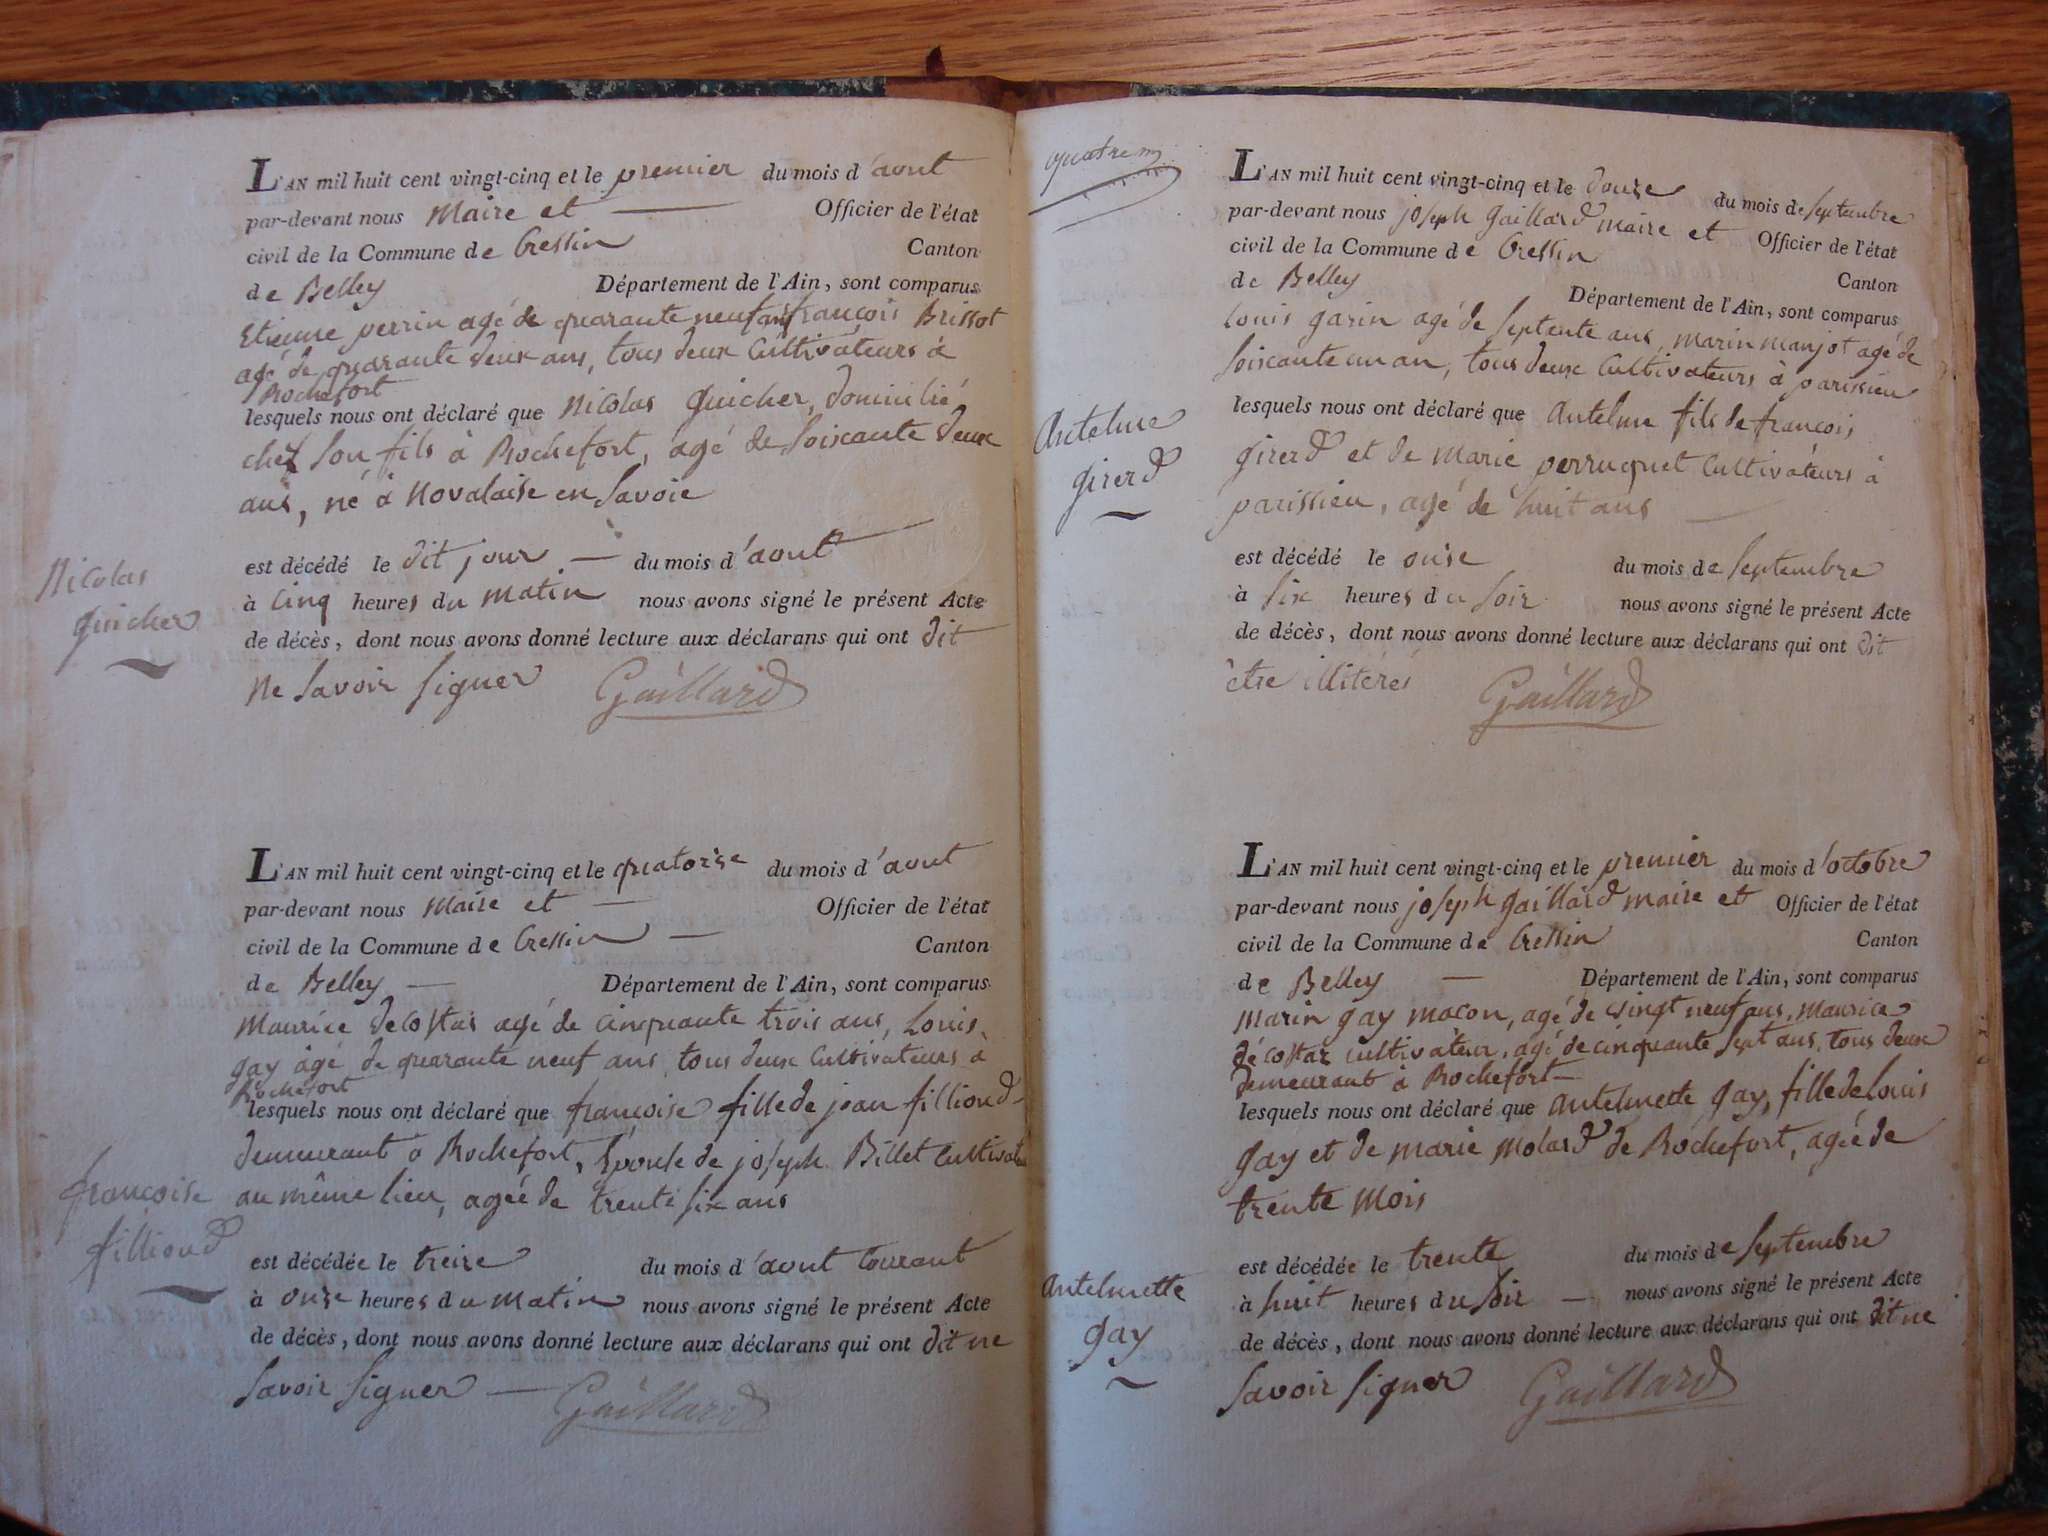 L'AN mil huit cent vingt-cinq et le premier du mois d'aout
par-devant nous Maire et — Officier de l'état
civil de la Commune de Cressin Canton
de Belley Département de l'Ain, sont comparus
Etienne perrin agé de quarante neuf ans françois Brissot
agé de quarante deux ans, tous deux Cultivateurs à
Rochefort
lesquels nous ont déclaré que Nicolas Guicher, domicilié
chez son fils à Rochefort, agé de soixante deux
ans, né à Novalaise en Savoie
Nicolas
Guicher
est décédé le dit jour — du mois d'aout
à Cinq heures du matin nous avons signé le présent Acte
de décès, dont nous avons donné lecture aux déclarans qui ont dit
ne savoir signer Gaillard
L'AN mil huit cent vingt-cinq et le quatorse du mois d'aout
par-devant nous Maire et — Officier de l'état
civil de la Commune de Cressin — Canton
de Belley — Département de l'Ain, sont comparus
Maurice decostas agé de cinquante trois ans, Louis
gay âgé de quarante neuf ans, tous deux Cultivateurs à
Rochefort
lesquels nous ont déclaré que françoise fille de jean fillioud
demeurant a Rochefort, Epouse de joseph Billet Cultivateur
au même lieu, agée de trente six ans
françoise
fillioud
est décédée le treise du mois d'aout Courant
à onse heures du matin nous avons signé le présent Acte
de décès, dont nous avons donné lecture aux déclarans qui ont dit ne
Savoir signer — Gaillard
quatrem
L'AN mil huit cent vingt-cinq et le douse du mois de septembre
par-devant nous joseph Gaillard maire et Officier de l'état
civil de la Commune de Cressin Canton
de Belley Département de l'Ain, sont comparus
Louis garin agé de septente ans, marin manjot agé de
soixante un an, tous deux Cultivateurs à parissieu
lesquels nous ont déclaré que Antelme fils de françois
girerd et de Marie perruquet Cultivateurs à
parissieu, agé de huit ans
Antelme
girerd
est décédé le onse du mois de septembre
à six heures du soir nous avons signé le présent Acte
de décès, dont nous avons donné lecture aux déclarans qui ont dit
être illiterés Gaillard
L'AN mil huit cent vingt-cinq et le premier du mois d'octobre
par-devant nous joseph gaillard maire et Officier de l'état
civil de la Commune de Cressin Canton
de Belley — Département de l'Ain, sont comparus
Marin gay macon, agé de vingt neuf ans, Maurice
décostaz cultivateur, agé de cinquante sept ans, tous deux
demeurant à Rochefort —
lesquels nous ont déclaré que Antelmette gay, fille de Louis
gay et de marie Molard de Rochefort, agée de
trente mois
est décédée le trente du mois de septembre
Antelmette
gay
à huit heures du soir — nous avons signé le présent Acte
de décès, dont nous avons donné lecture aux déclarans qui ont dit ne
Savoir signer Gaillard